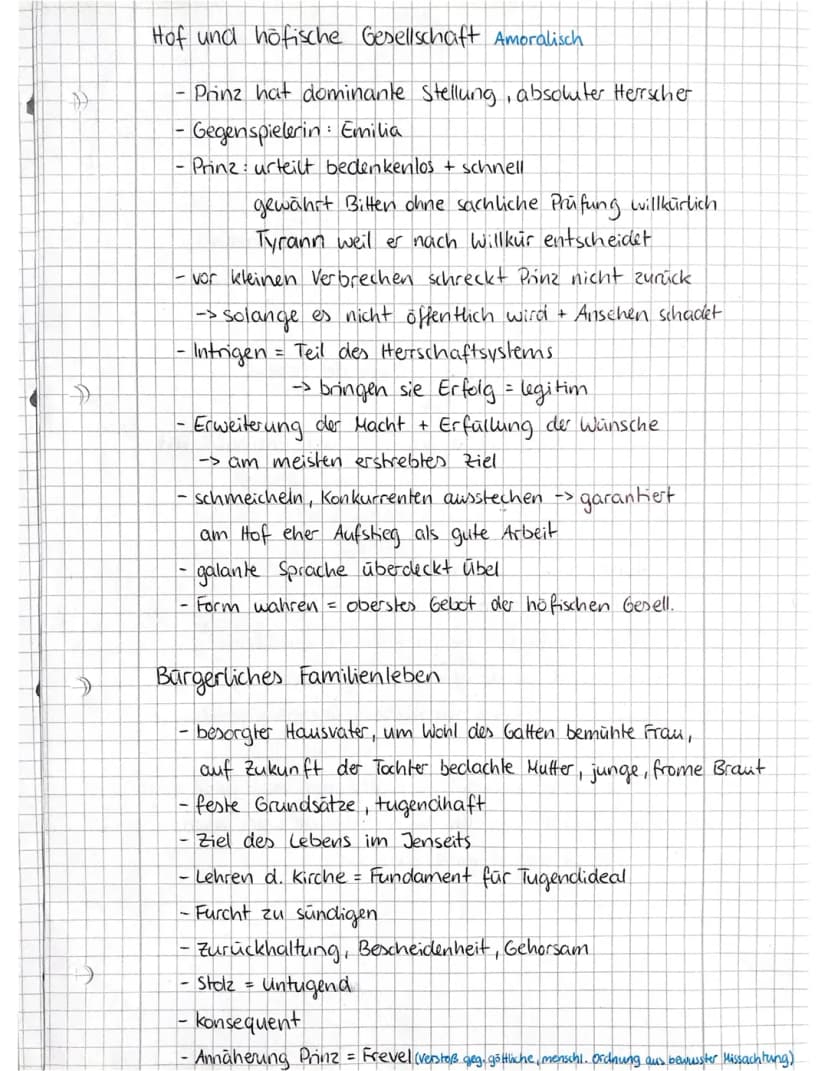 Hof und höfische Gesellschaft Amoralisch
- Prinz hat dominante Stellung, absoluter Herrscher
- Gegenspielerin: Emilia
- Prinz: urteilt bedenkenlos + schnell
gewährt Bitten ohne sachliche Prüfung willkürlich
Tyrann weil er nach Willkür entscheidet
- vor kleinen Verbrechen schreckt Prinz nicht zurück
-> solange es nicht öffentlich wird + Ansehen schadet
- Intrigen = Teil des Herrschaftsystems
-> bringen sie Erfolg = legitim
- Erweiterung der Macht + Erfüllung der Wünsche
-> am meisten erstrebtes Ziel
- schmeicheln, Konkurrenten ausstechen -> garantiert
am Hof eher Aufstieg als gute Arbeit
- galante Sprache überdeckt übel
- Form wahren = oberstes Gebot der höfischen Gesell.
Bürgerliches Familienleben
- besorgter Hausvater, um Wohl des Gatten bemühte Frau,
auf Zukunft der Tochter bedachte Mutter, junge, frome Braut
- feste Grundsätze, tugendhaft
- Ziel des Lebens im Jenseits
- Lehren d. Kirche = Fundament für Tugendideal
- Furcht zu sündigen
- Zurückhaltung, Bescheidenheit, Gehorsam
- Stolz = Untugend
- konsequent
- Annäherung Prinz = Frevel (Verstoß geg. göttliche, menschl. Ordnung aus bewusster Missachtung)